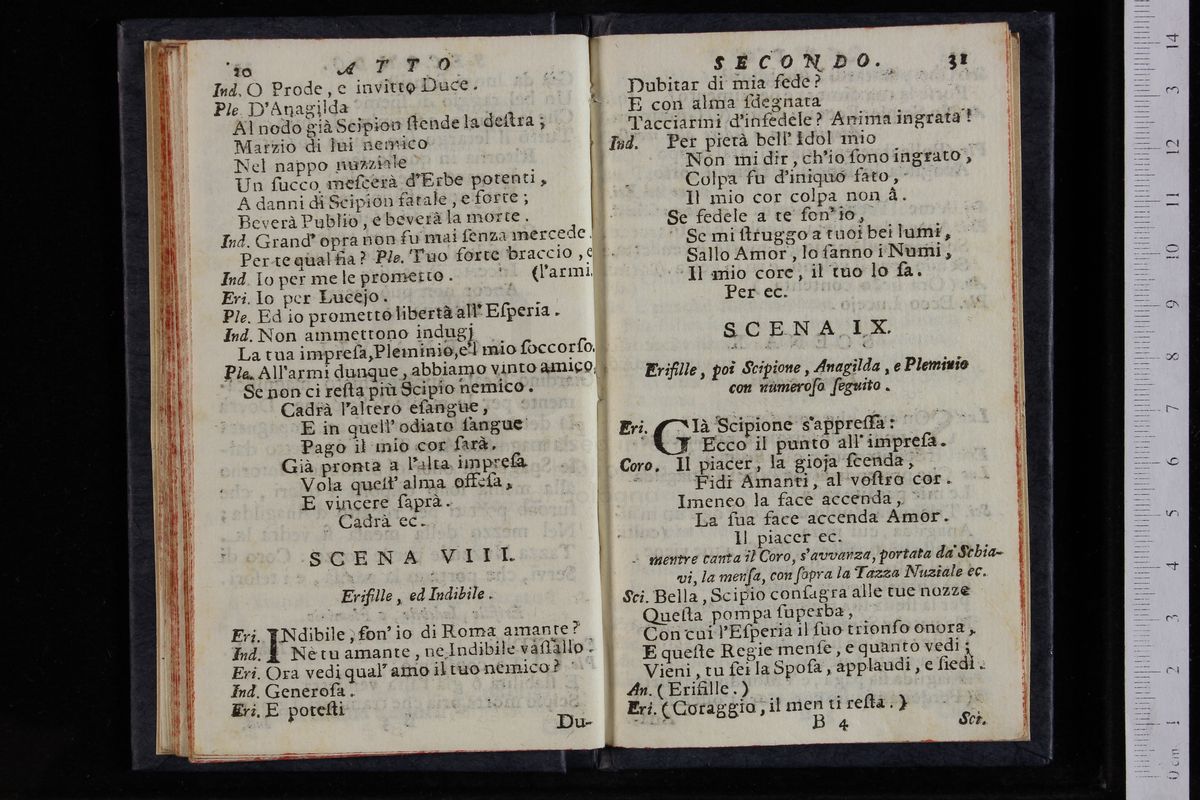 20 ATTO
Ind. O Prode, e invitto Duce.
Ple. D'Anagilda
Al nodo già Scipion ſtende la deſtra;
Marzio di lui nemico
Nel nappo nuzziale
Un ſucco meſcerà d'Erbe potenti,
A danni di Scipion fatale, e forte;
Beverà Publio, e beverà la morte.
Ind. Grand' opra non fu mai ſenza mercede.
Per te qual fia? Ple. Tuo forte braccio, e
Ind. Io per me le prometto. (l'armi.
Eri. Io per Lucejo.
Ple. Ed io prometto libertà all' Eſperia.
Ind. Non ammettono indugj
La tua impreſa, Pleminio, e'l mio ſoccorſo.
Ple. All'armi dunque, abbiamo vinto amico,
Se non ci reſta più Scipio nemico.
Cadrà l'altero eſangue,
E in quell' odiato ſangue
Pago il mio cor ſarà.
Già pronta a l'alta impreſa
Vola queſt' alma offeſa,
E vincere ſaprà.
Cadrà ec.
SCENA VIII.
Eriſille, ed Indibile.
Eri. INdibile, ſon' io di Roma amante?
Ind. Nè tu amante, ne Indibile vaſſallo.
Eri. Ora vedi qual' amo il tuo nemico?
Ind. Generoſa.
Eri. E poteſti
Du-
SECONDO. 31
Dubitar di mia fede?
E con alma ſdegnata
Tacciarmi d'infedele? Anima ingrata!
Ind. Per pietà bell' Idol mio
Non mi dir, ch'io ſono ingrato,
Colpa fu d'iniquo fato,
Il mio cor colpa non â.
Se fedele a te ſon' io,
Se mi ſtruggo a tuoi bei lumi,
Sallo Amor, lo ſanno i Numi,
Il mio core, il tuo lo ſa.
Per ec.
SCENA IX.
Eriſille, poi Scipione, Anagilda, e Pleminio
con numeroſo ſeguito.
Eri. GIà Scipione s'appreſſa:
Ecco il punto all' impreſa.
Coro. Il piacer, la gioja ſcenda,
Fidi Amanti, al voſtro cor.
Imeneo la face accenda,
La ſua face accenda Amor.
Il piacer ec.
mentre canta il Coro, s'avvanza, portata da Schia-
vi, la menſa, con ſopra la Tazza Nuziale ec.
Sci. Bella, Scipio conſagra alle tue nozze
Queſta pompa ſuperba,
Con cui l'Eſperia il ſuo trionfo onora,
E queſte Regie menſe, e quanto vedi;
Vieni, tu ſei la Spoſa, applaudi, e ſiedi.
An. (Eriſille.)
Eri. (Coraggio, il men ti reſta.)
B 4 Sci.
0 cm 1 2 3 4 5 6 7 8 9 10 11 12 13 14